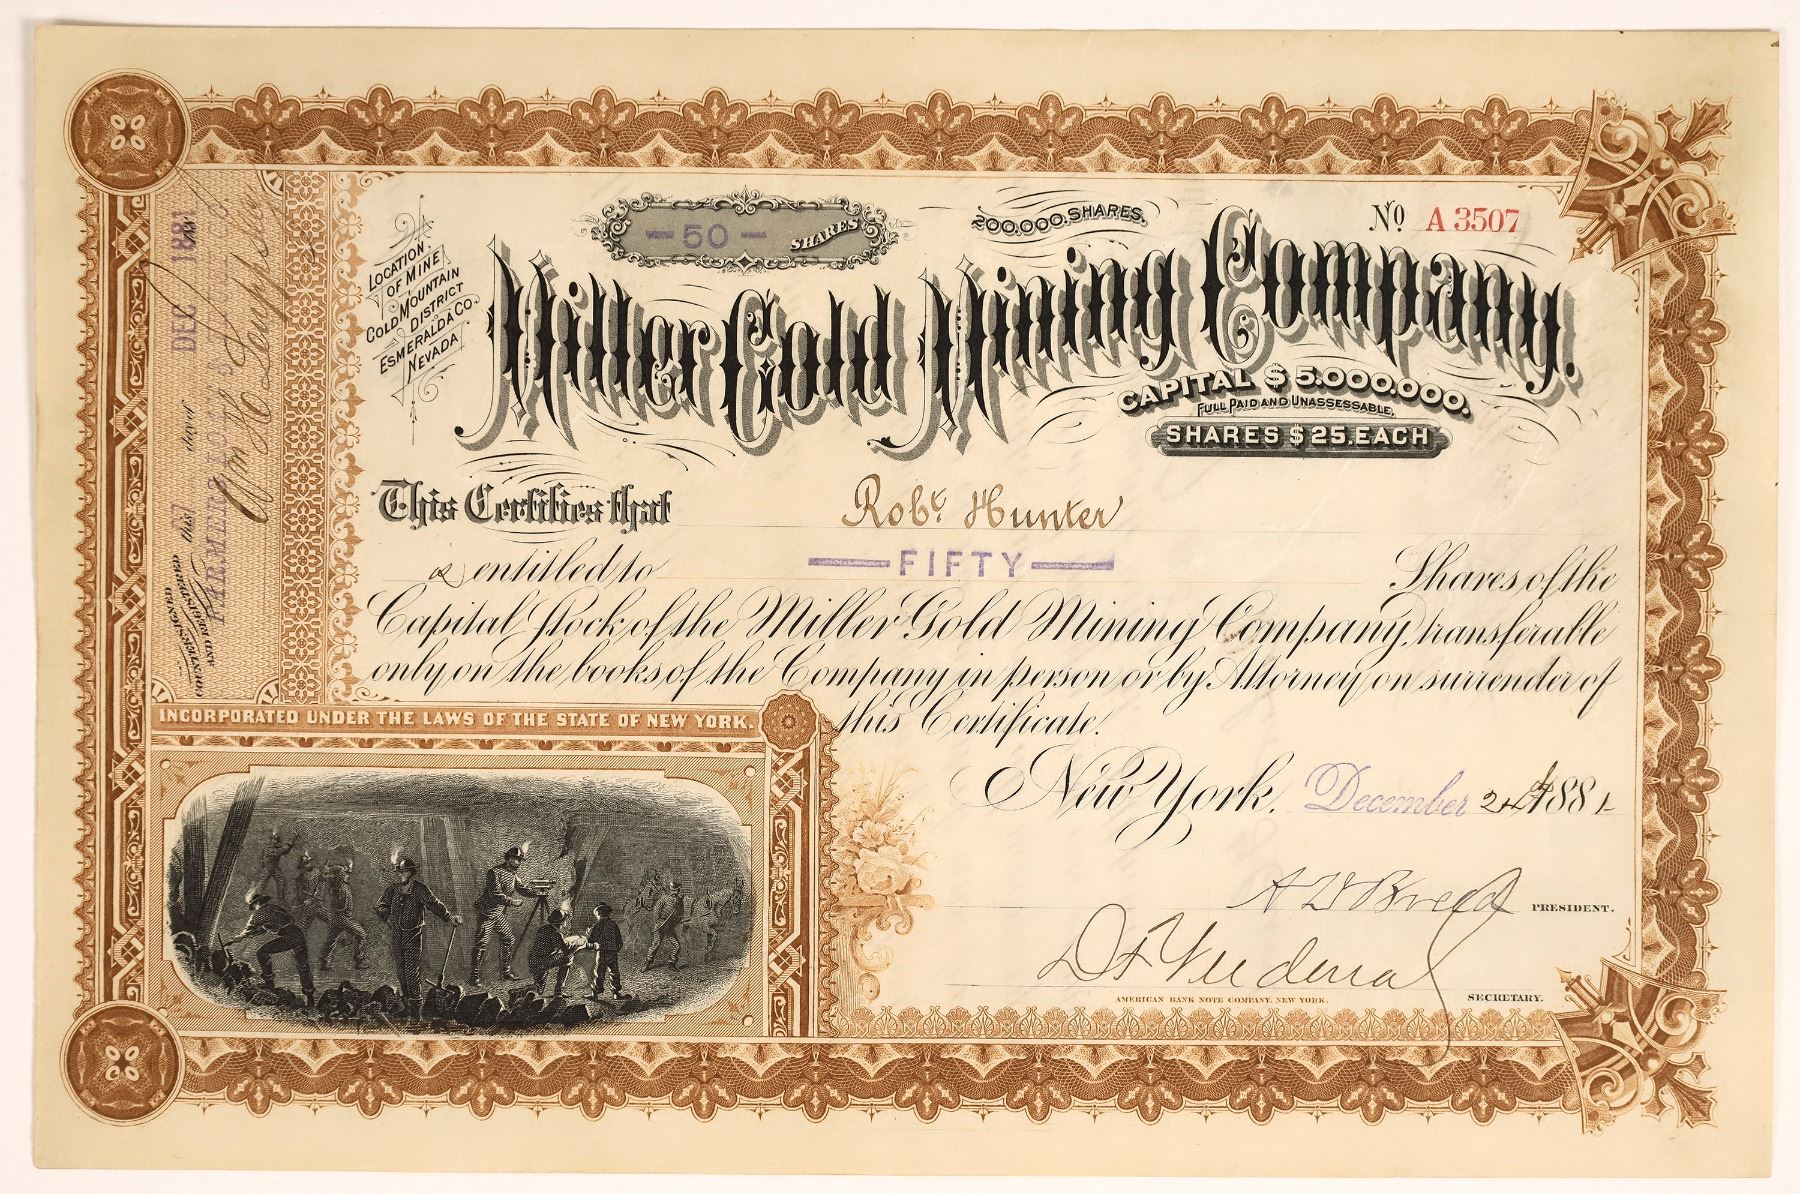 - 50 - SHARES
200,000. SHARES.
No A 3507
LOCATION
OF MINE
GOLD MOUNTAIN
DISTRICT
ESMERALDA CO.
NEVADA
Miller Gold Mining Company.
CAPITAL $5.000.000.
FULL PAID AND UNASSESSABLE.
SHARES $25. EACH
This Certifies that Robt. Hunter
is entitled to FIFTY Shares of the
Capital Stock of the Miller Gold Mining Company, transferable
only on the books of the Company in person or by Attorney on surrender of
this Certificate.
New York, December 24th 1881
PRESIDENT.
SECRETARY.
AMERICAN BANK NOTE COMPANY, NEW YORK.
INCORPORATED UNDER THE LAWS OF THE STATE OF NEW YORK.
COUNTERSIGNED
AND REGISTERED
this day of DEC 1881
FARMERS LOAN &
Wm H